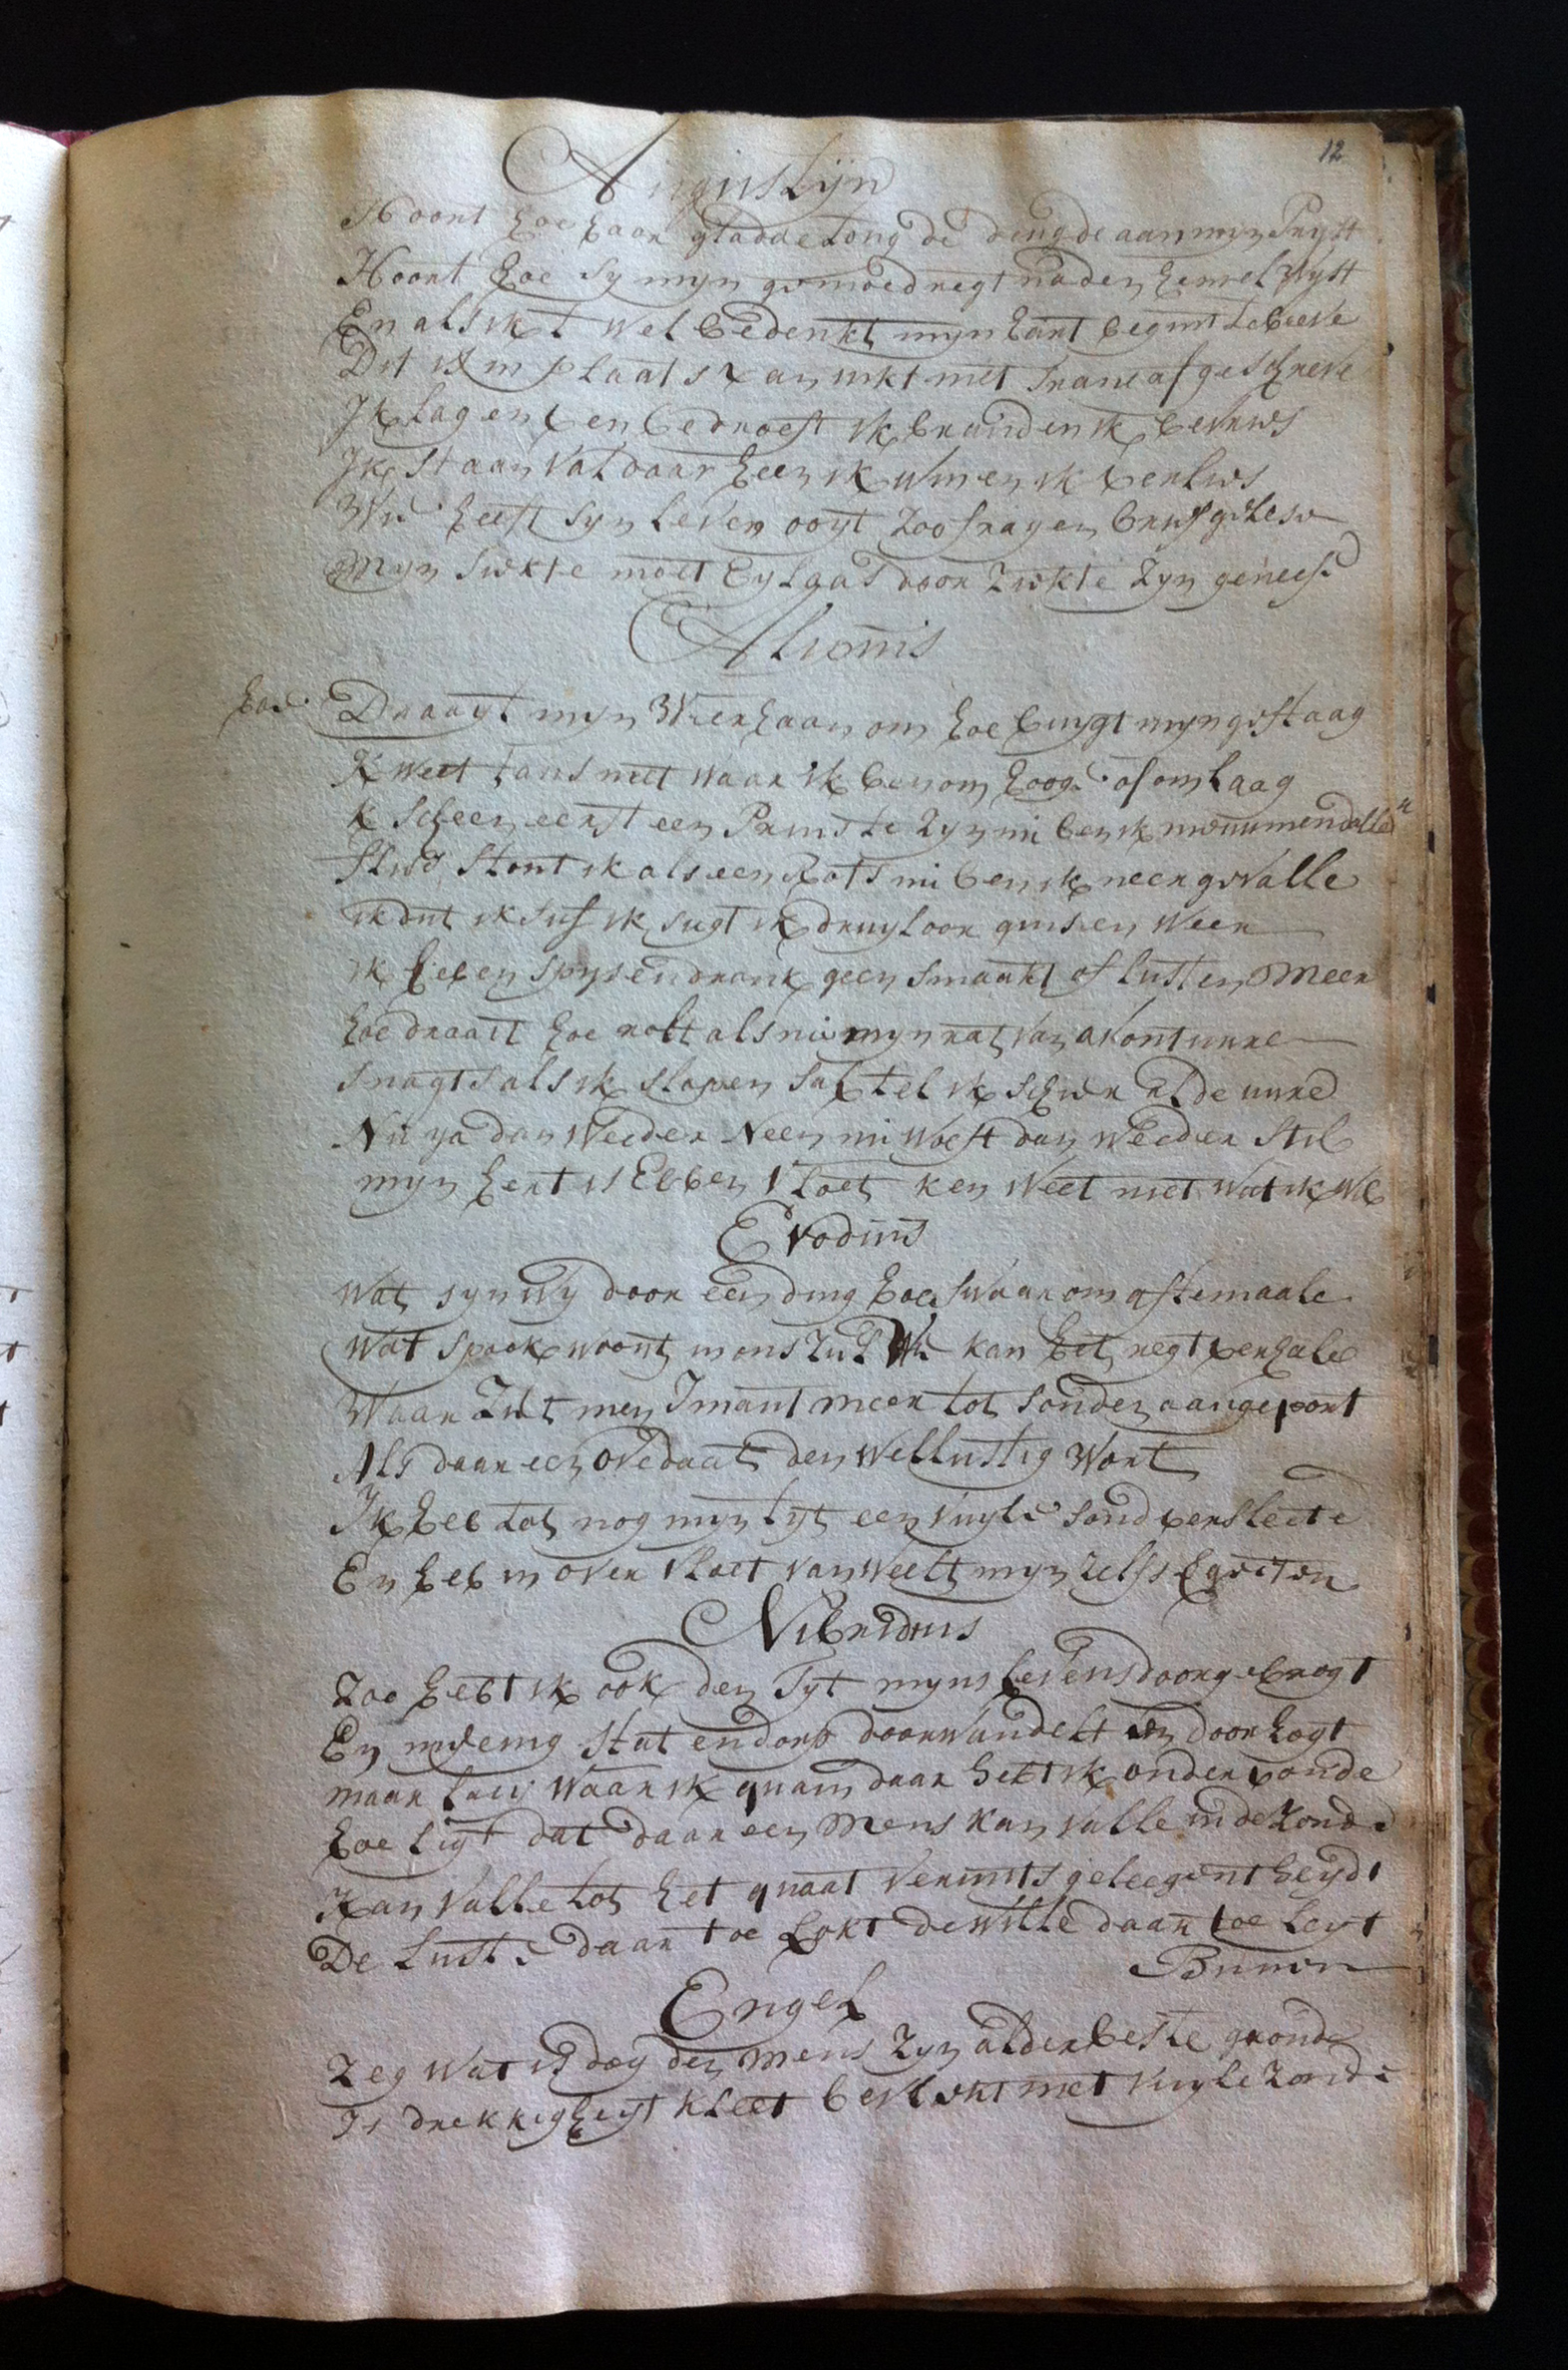 12
Augustijn
Hoort hoe haar gladde tong de deugde aan myn Pryst
Hoort hoe sy myn gemoed regt na den hemel wyst
En als ik t wel bedenkt myn hant begint te beeve
Dit is in plaats van inkt met trane afgeschreve
Ik lag en ben bedroeft ik brand en ik bevries
Ik staan val daar heen ik win en ik verlies
Wie heeft syn leven ooyt zoo frayen brief gelese
Myn siekte moet Eylaas door ziekte zyn geneese
Alipius
hoe Draayt myn Weerhaan om hoe buygt myn gestaag
K weet tans niet waar ik ben om hoog of om laag
K scheen eerst een Prins te zyn nu ben ik
flus stont ik als een Rots nu ben ik neer gevalle
ik dut ik suf ik sugt ik druyloor gins en weer
ik heb en spys en drank geen smaakt of lusten meer
hoe draait hoe rolt als nu myn rat van avontuure
snagts als ik slapen sal tel ik schier al de uure
Nu ya dan weeder Neen nu woest dan weeder stil
myn hert is Ebb en vloet k en weet niet wat ik wil
Evodius
Wat syn wy door een ding hoe swaar om af te maale
Wat spook woont in ons ziel Wie kan het regt verhale
Waar ziet men Imant meer tot sonden aangeport
Als daar een overdaat den wellustig wort
Ik heb tot nog myn tyt een vuyle sond versleete
En heb in over vloet van weelt myn zelfs vergeeten
Nibridius
Zoo hebt ik ook den Tyt myns levens doorgebragt
En menig stat en dorp doorwandelt en doorzogt
maar laes waar ik quam daar hebt ik ondervonde
hoe ligt dat daar een Mens kan valle in de Zonde
Kan valle tot het quaat vermits geleegentheydt
De Luste daar toe Lokt de wille daar toe leyt
Binnen
Engel
Zeg wat is dog den Mens zyn alderbeste gronde
Is drekkigheyt kleet bevlekt met vuyle zonde